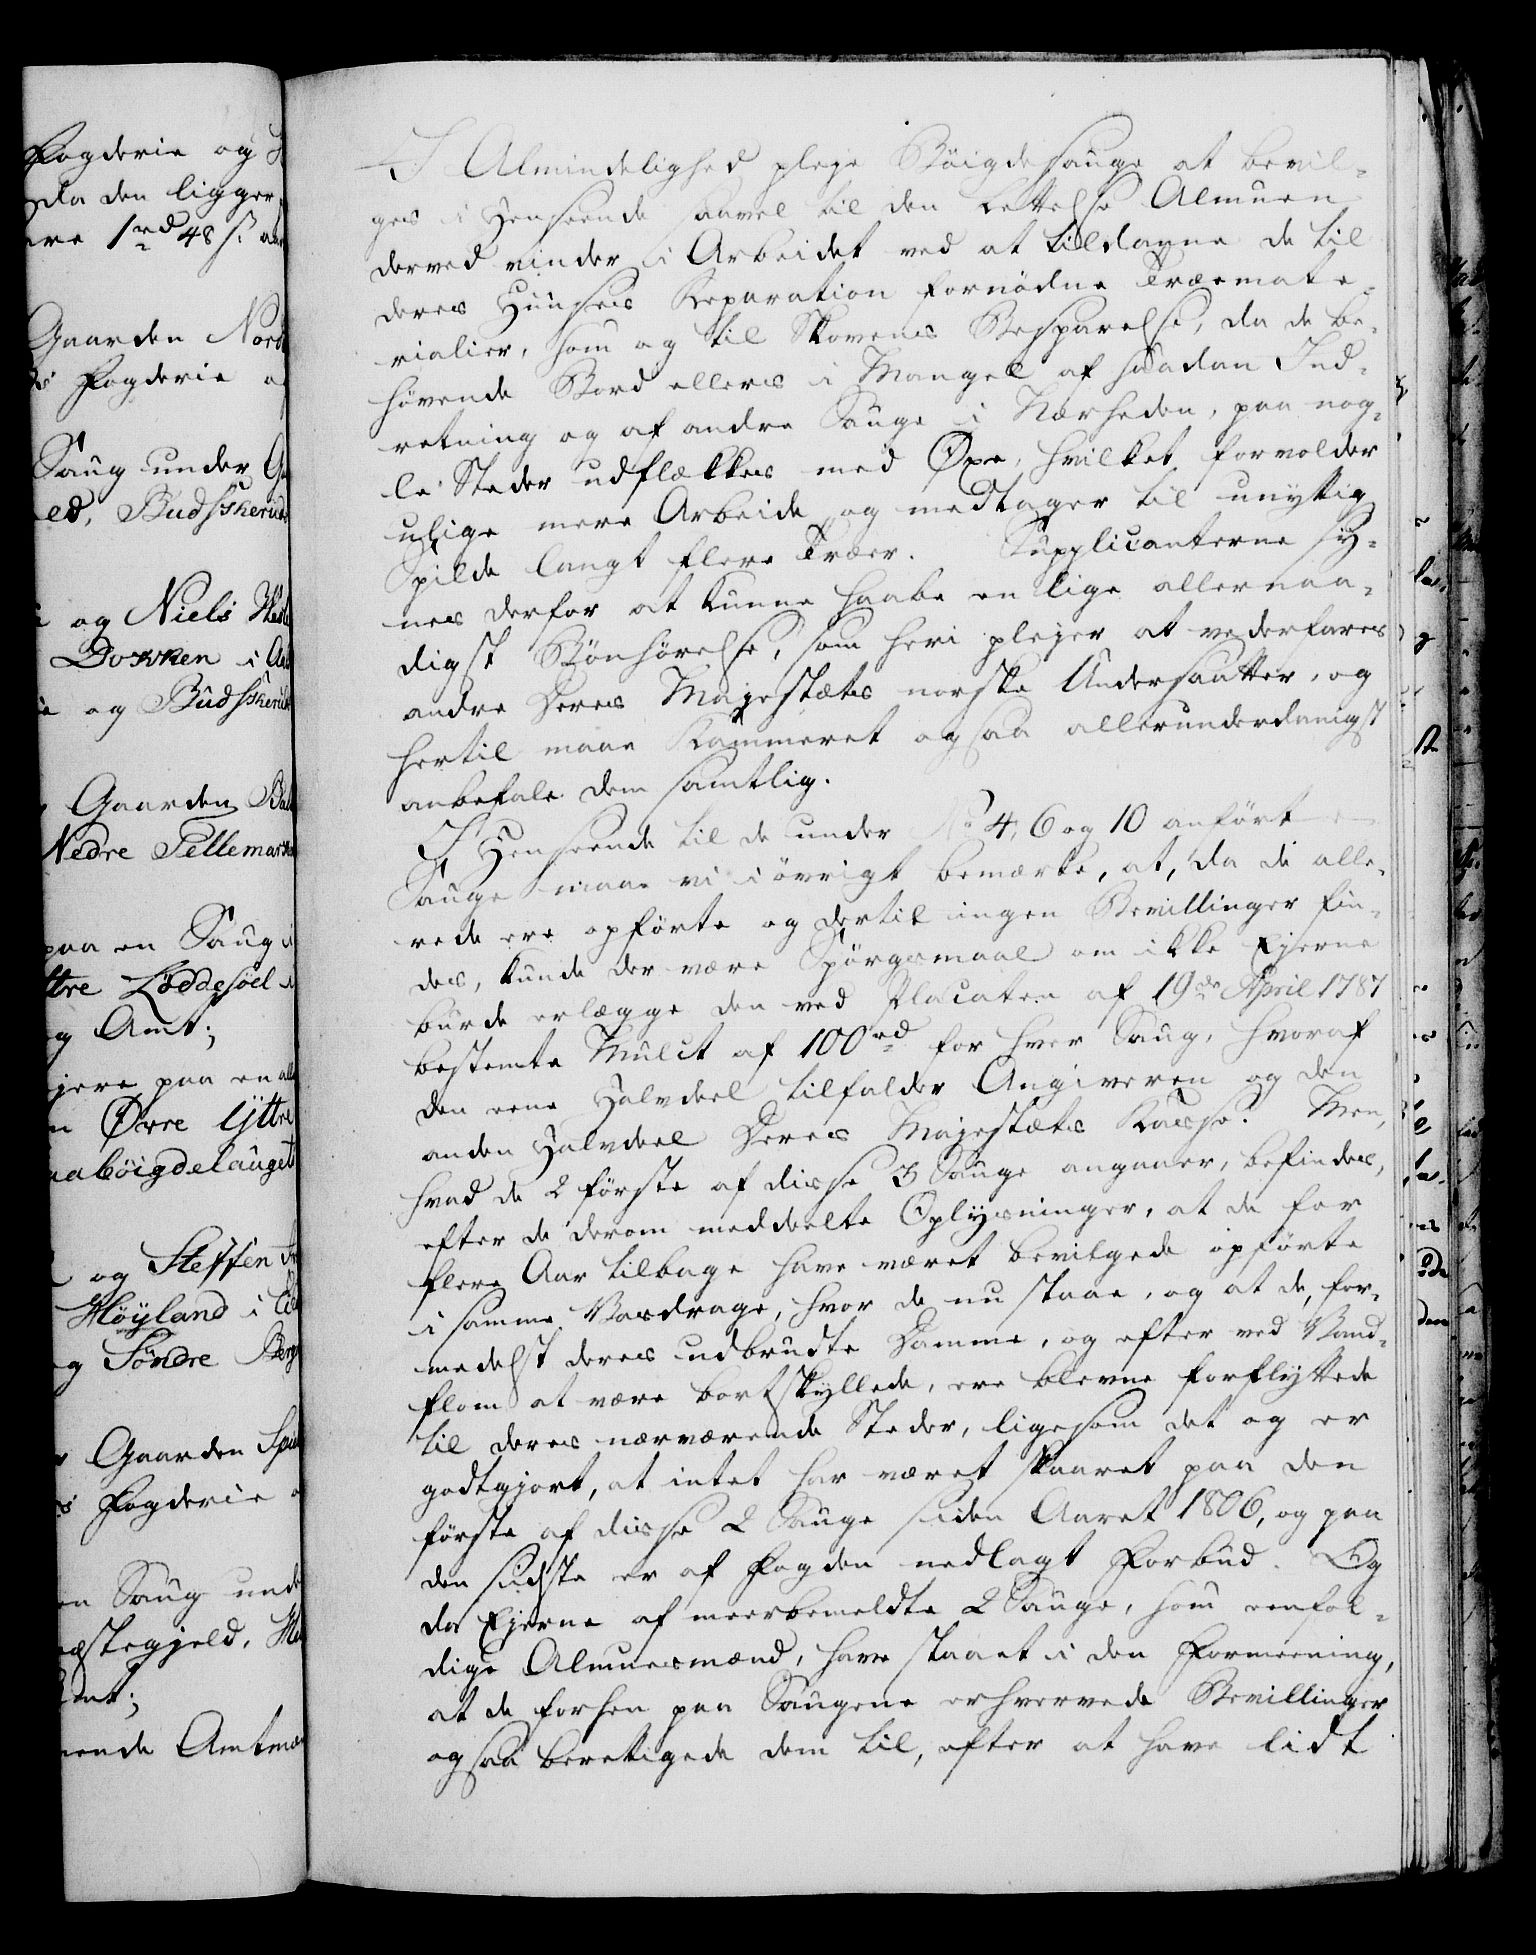 Fogderie og
da den ligger
1 rd 48 s
Gaarden Nord
Fogderie
Saug under
Budskerud
og Niels
Dokken i
og Budskerud
Gaarden
Nedre Tellemark
paa en Saug i
Löddesöel
og Amt;
Ejere paa en
Övre Yttre
böigdelauget
og Steffen
Höyland i
og Söndre
Gaarden
Fogderie
en Saug unde
Præstegjeld,
Amt;
Amtmæ
I Almindelighed pleje Böigdesauge at bevil-
ges i Henseende saavel til den Lettelse Almuen
derved vinder i Arbeidet ved at tildanne de til
deres Huuses Reparation fornödne Træemate-
rialier, som og til Skovens Besparelse, da de be-
hövende Bord ellers i Mangel af saadan Ind-
retning og af andre Sauge i Nærheden, paa nog-
le Steder udflækkes med Öxe, hvilket forvolder
ulige mere Arbeide og medtager til unyttig
Spilde langt flere Træer. Supplicanterne sy-
nes derfor at kunne haabe en lige allernaa-
digst Bönhörelse, som heri plejer at vederfares
andre Deres Majestæts norske Undersaatter, og
hertil maae Kammeret ogsaa allerunderdanigst
anbefale dem samtlig.
I Henseende til de under No 4, 6 og 10 anförte
Sauge maae vi i övrigt bemærke, at, da de alle-
rede ere opförte og dertil ingen Bevillinger fin-
des, kunde der være Spörgsmaal om ikke Ejerne
burde erlægge den ved Placaten af 19de April 1787
bestemte Mulct af 100 rd for hver Saug, hvoraf
den eene Halvdeel tilfalder Angiveren og den
anden Halvdeel Deres Majestæts Kasse. Men,
hvad de 2 förste af disse 3 Sauge angaaer, befindes,
efter de derom meddeelte Oplysninger, at de for
flere Aar tilbage have været bevilgede opförte
i samme Vasdrage, hvor de nu staae, og at de, for-
medelst deres udbrudte Damme, og efter ved Vand-
flom at være bortskyllede, ere blevne forflyttede
til deres nærværende Steder, ligesom det og er
godtgjort, at intet har været skaaret paa den
förste af disse 2 Sauge siden Aaret 1806, og paa
den sidste er af Fogden nedlagt Forbud. Og
da Ejerne af meerbemeldte 2 Sauge, som eenfol-
dige Almuesmænd, have staaet i den Formeening,
at de forhen paa Saugene erhvervede Bevillinger
ogsaa beretigede dem til, efter at have lidt